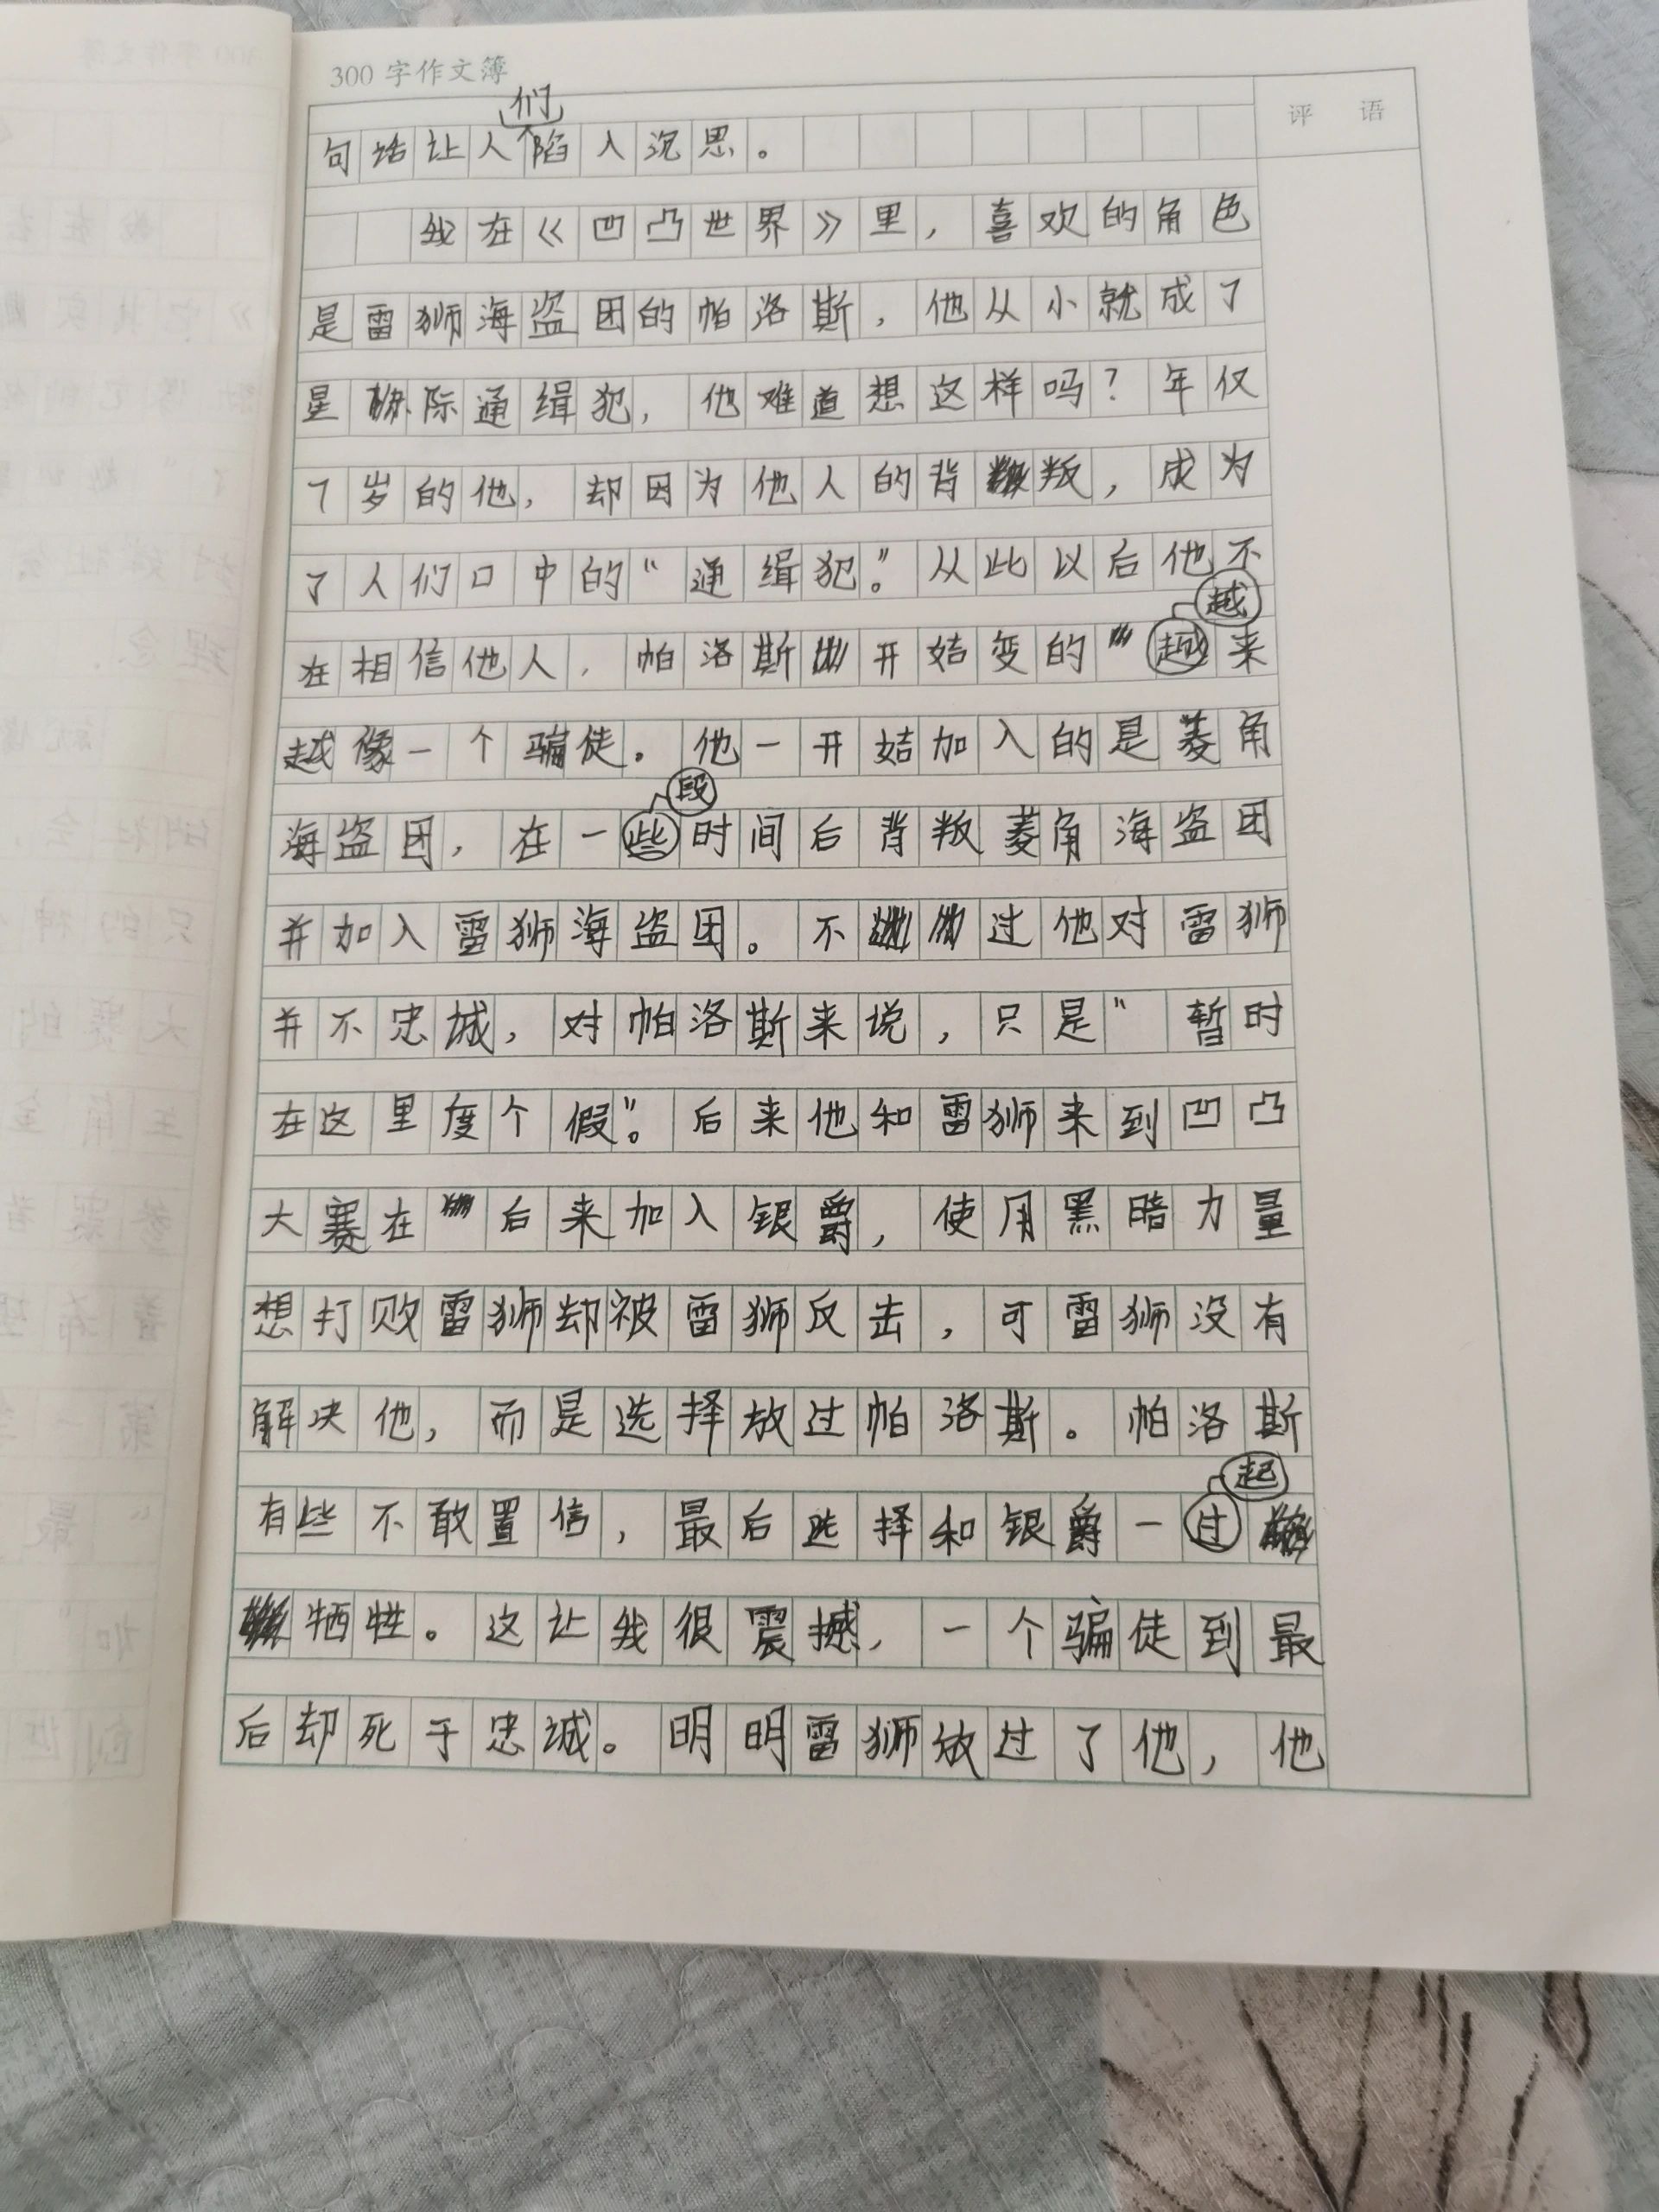 300 字作文簿
评 语
句话让人们陷入沉思。
我在《凹凸世界》里，喜欢的角色
是雷狮海盗团的帕洛斯，他从小就成了
星际通缉犯，他难道想这样吗？年仅
7岁的他，却因为他人的背叛，成为
了人们口中的“通缉犯”。从此以后他不
在相信他人，帕洛斯开始变的越来
越像一个骗徒。他一开始加入的是菱角
海盗团，在一段时间后背叛菱角海盗团
并加入雷狮海盗团。不过他对雷狮
并不忠诚，对帕洛斯来说，只是“暂时
在这里度个假”。后来他和雷狮来到凹凸
大赛在后来加入银爵，使用黑暗力量
想打败雷狮却被雷狮反击，可雷狮没有
解决他，而是选择放过帕洛斯。帕洛斯
有些不敢置信，最后选择和银爵一起
牺牲。这让我很震撼，一个骗徒到最
后却死于忠诚。明明雷狮放过了他，他